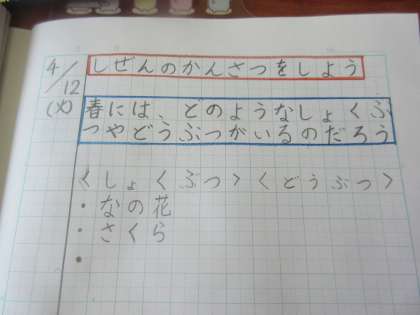 4/12
(火)
しぜんのかんさつをしよう
春には、どのようなしょくぶ
つやどうぶつがいるのだろう
〈しょくぶつ〉〈どうぶつ〉
・なの花
・さくら
・